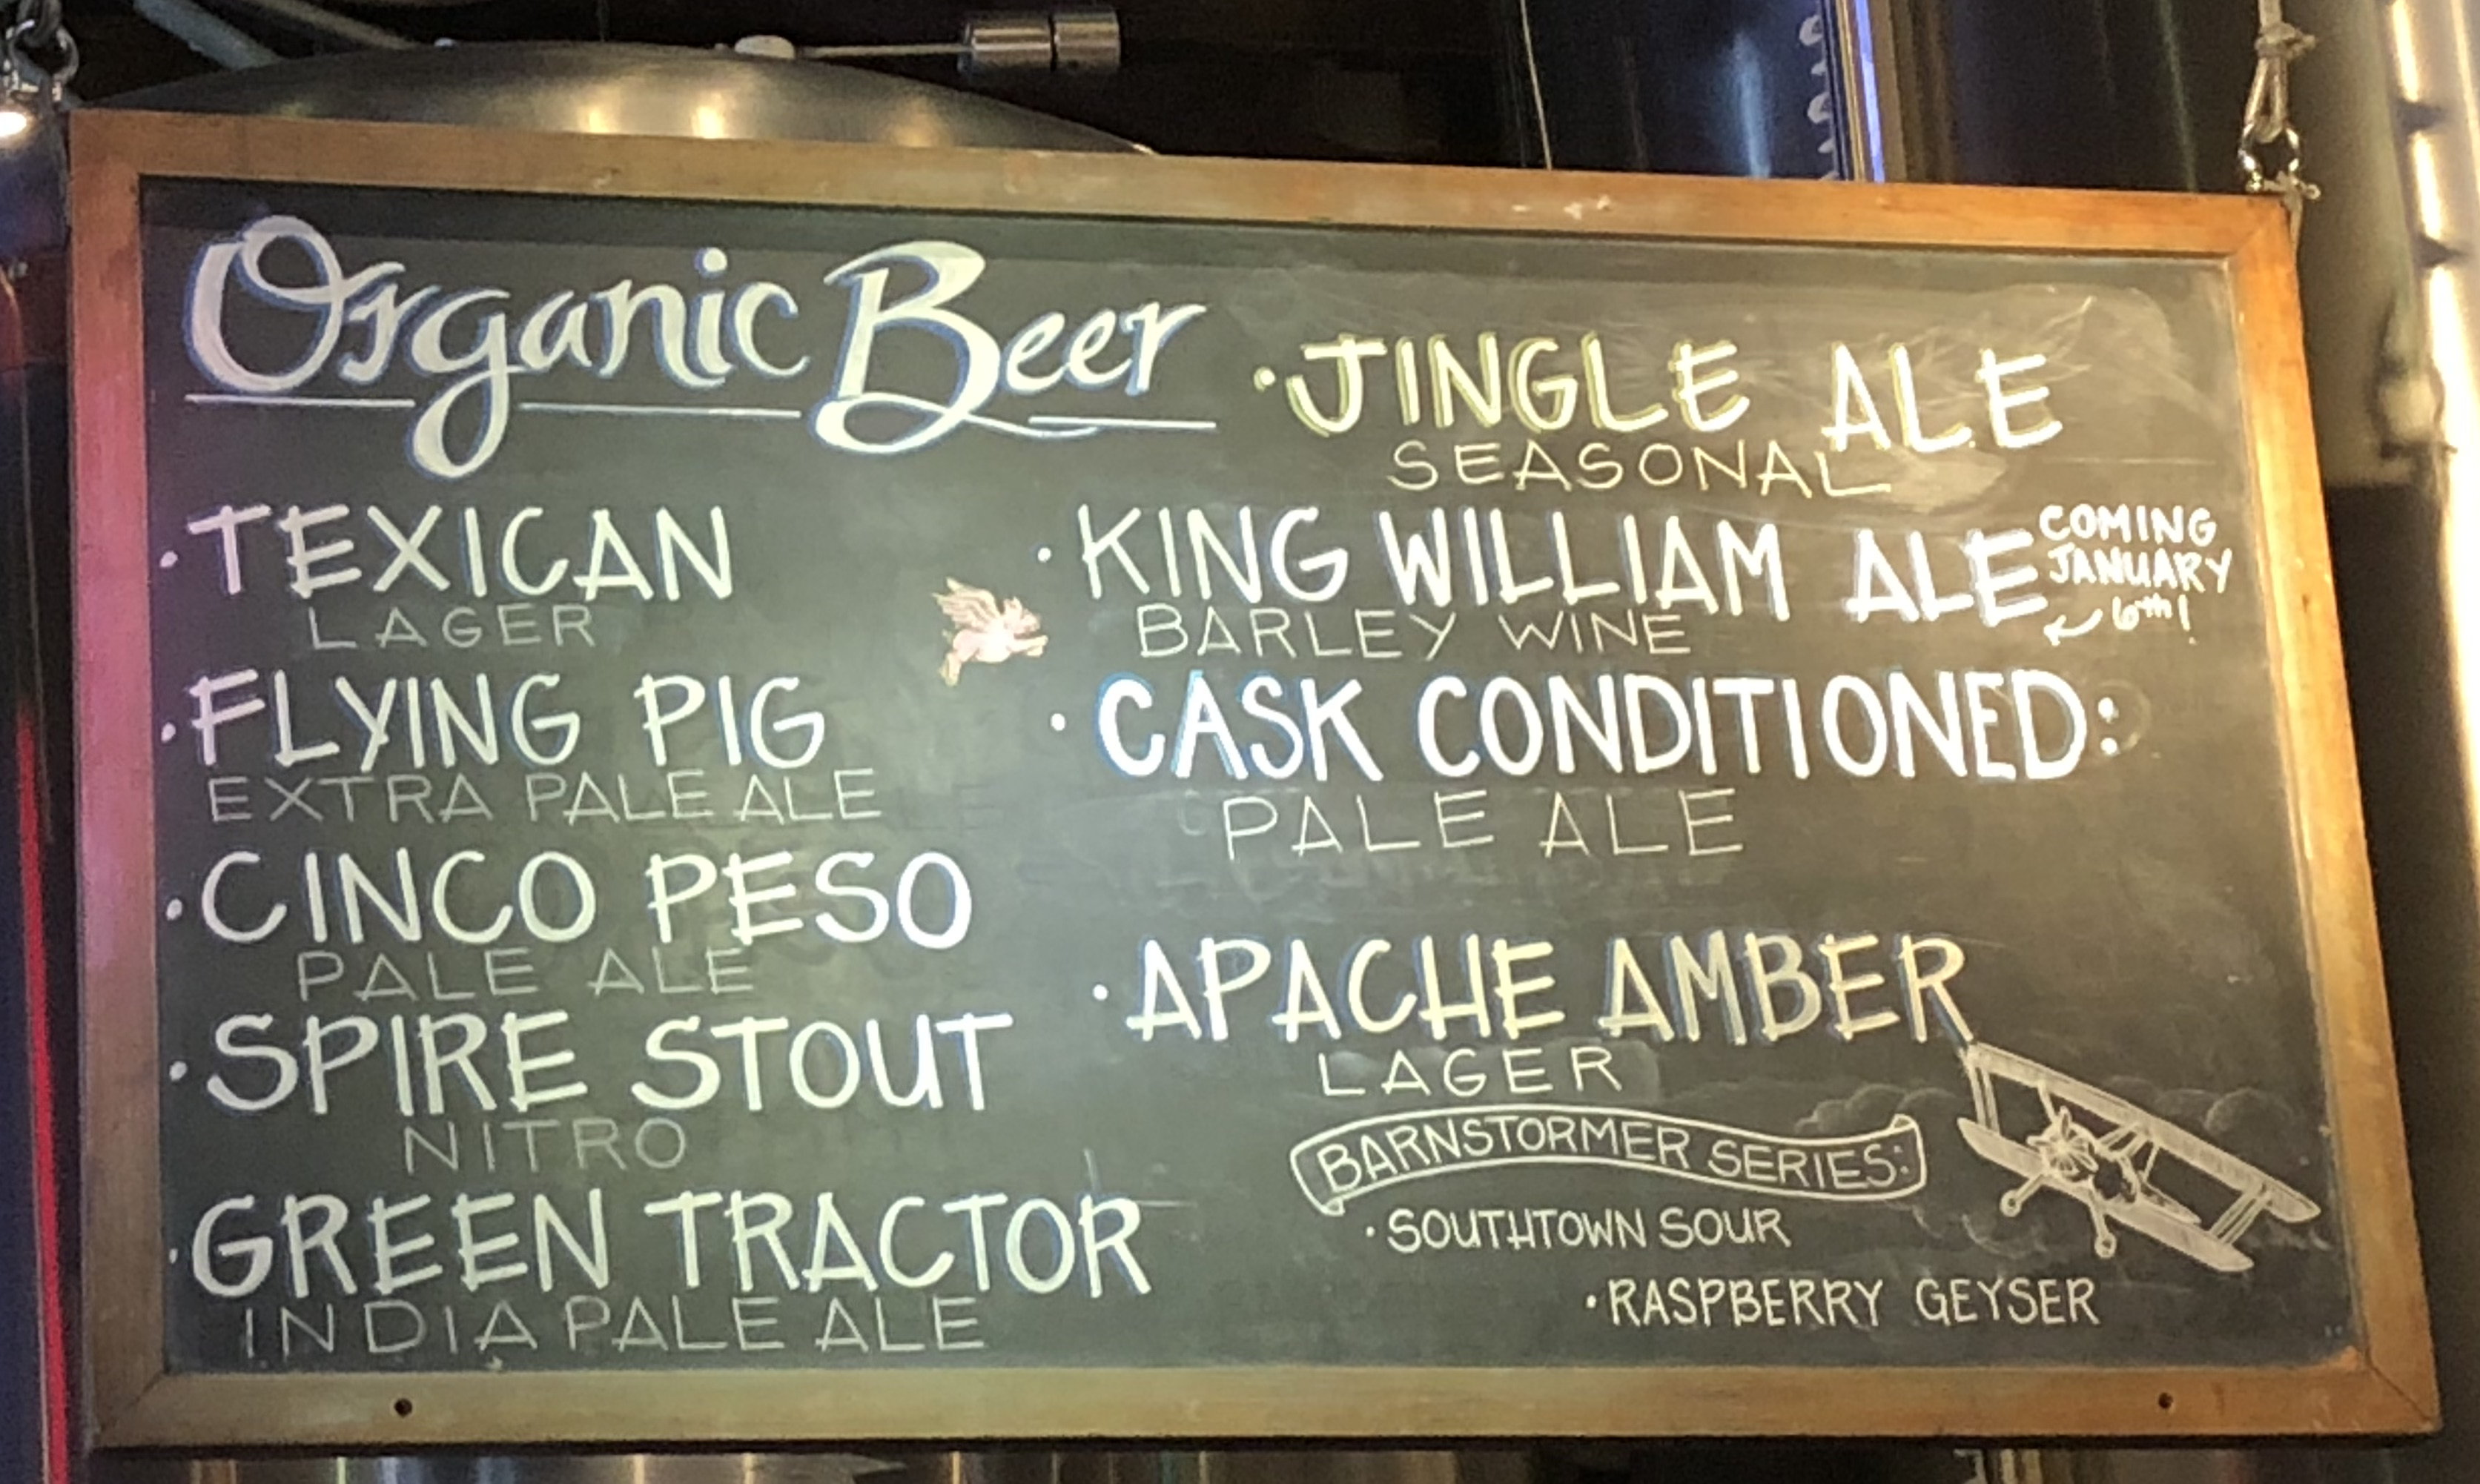 Organic Beer
· TEXICAN
LAGER
· FLYING PIG
EXTRA PALE ALE
· CINCO PESO
PALE ALE
· SPIRE STOUT
NITRO
· GREEN TRACTOR
INDIA PALE ALE
· JINGLE ALE
SEASONAL
· KING WILLIAM ALE
BARLEY WINE
COMING
JANUARY
6th!
· CASK CONDITIONED:
PALE ALE
· APACHE AMBER
LAGER
BARNSTORMER SERIES:
· SOUTHTOWN SOUR
· RASPBERRY GEYSER